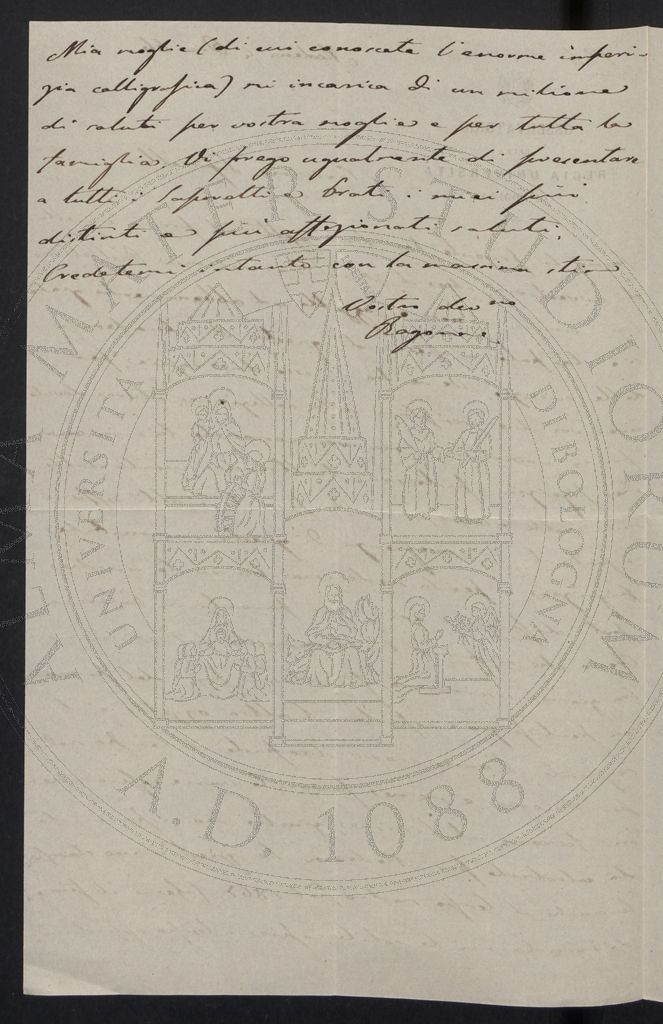 Mia moglie (di cui conoscete l'enorme imperi-
zia calligrafica) mi incarica di un milione
di saluti per vostra moglie e per tutta la
famiglia. Vi prego ugualmente di presentare
a tutti i e Prati i miei più
distinti e più affezionati saluti.
Credetemi intanto con la massima stima
Vostro devmo
Ragona
ALMA MATER STUDIORUM
UNIVERSITÀ DI BOLOGNA
A.D. 1088